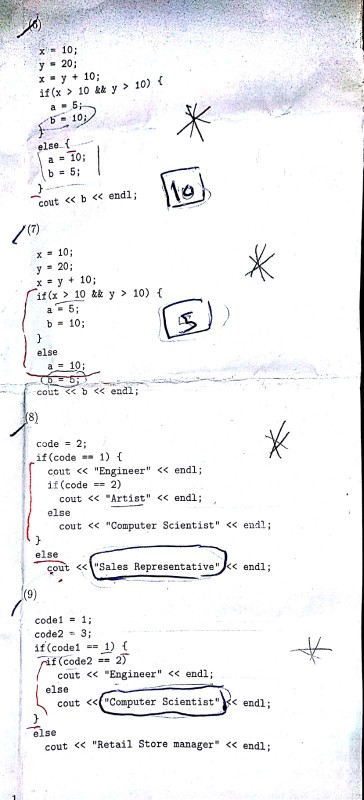 (6)
x = 10;
y = 20;
x = y + 10;
if(x > 10 && y > 10) {
a = 5;
b = 10;
}
else {
a = 10;
b = 5;
}
cout << b << endl;
10
(7)
x = 10;
y = 20;
x = y + 10;
if(x > 10 && y > 10) {
a = 5;
b = 10;
}
else
a = 10;
b = 5;
cout << b << endl;
5
(8)
code = 2;
if(code == 1) {
cout << "Engineer" << endl;
if(code == 2)
cout << "Artist" << endl;
else
cout << "Computer Scientist" << endl;
}
else
cout << "Sales Representative" << endl;
(9)
code1 = 1;
code2 = 3;
if(code1 == 1) {
if(code2 == 2)
cout << "Engineer" << endl;
else
cout << "Computer Scientist" << endl;
}
else
cout << "Retail Store manager" << endl;